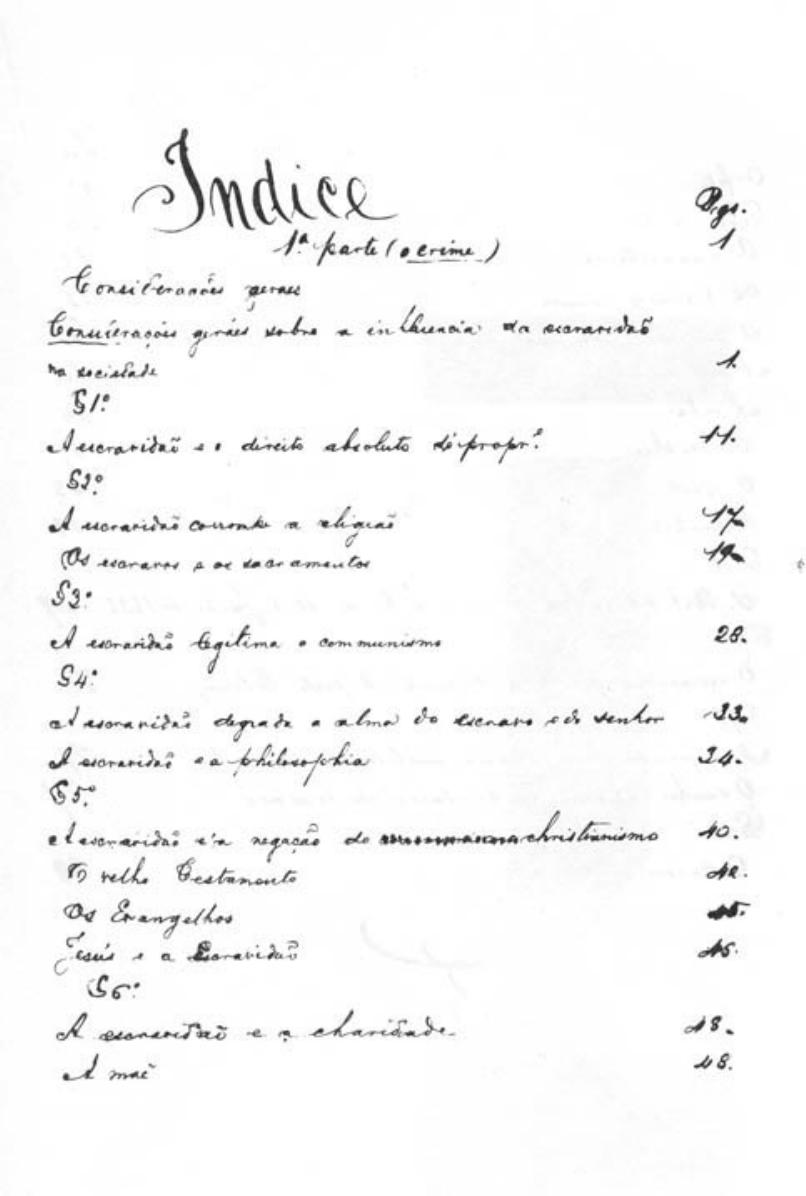 Indice
Pgs.
1ª parte (o crime) 1
Considerações geraes
Considerações geráes sobre a influencia da escravidaõ
na sociedade 1.
§1º
A escravidaõ e o direito absoluto de propr.e 11.
§2º
A escravidaõ corrompe a religiaõ 17
Os escravos e os sacramentos 19
§3º
A escravidaõ legitima o communismo 28.
§4º
A escravidaõ degrada a alma do escravo e do senhor 33.
A escravidaõ e a philosophia 34.
§5º
A escravidaõ e'a negaçaõ do christianismo 40.
O velho Testamento 42.
Os Evangelhos 45.
Jesús e a Escravidaõ 45.
§6º
A escravidaõ e a charidade 48.
A maẽ 48.